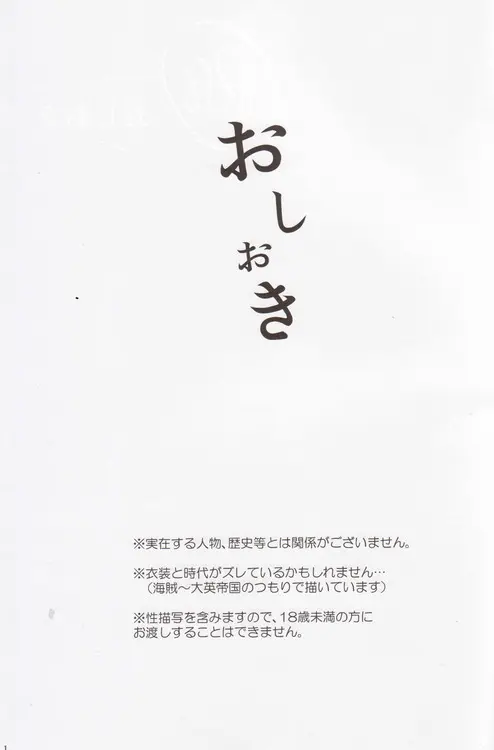 おしおき
※実在する人物、歴史等とは関係がございません。
※衣装と時代がズレているかもしれません…
（海賊～大英帝国のつもりで描いています）
※性描写を含みますので、18歳未満の方に
お渡しすることはできません。
1